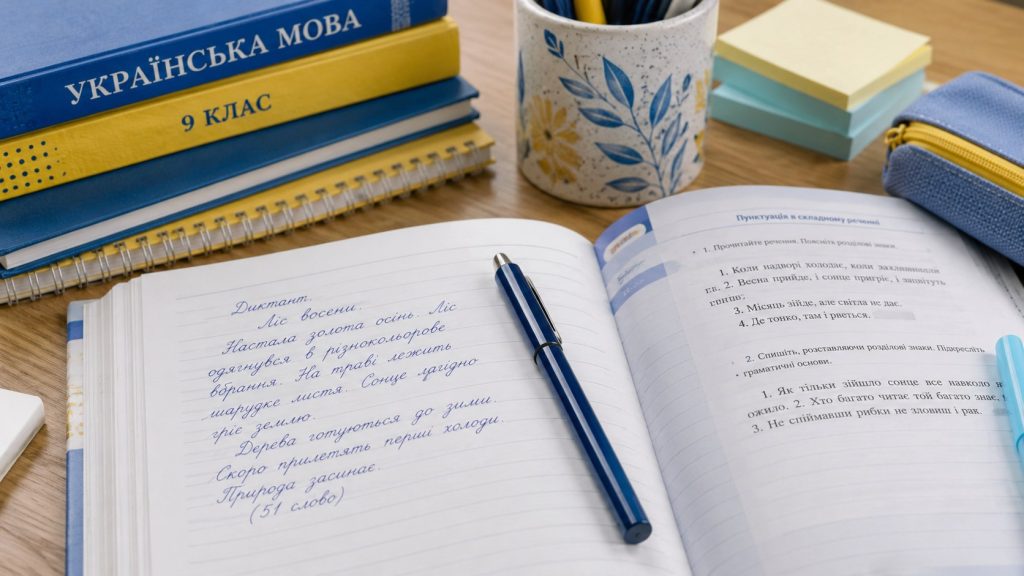 УКРАЇНСЬКА МОВА
9 КЛАС
Диктант.
Ліс восени.
Настала золота осінь. Ліс
одягнувся в різнокольорове
вбрання. На траві лежить
шарудке листя. Сонце лагідно
гріє землю.
Дерева готуються до зими.
Скоро прилетять перші холоди.
Природа засинає.
(51 слово)
Пунктуація в складному реченні
1. Прочитайте речення. Поясніть розділові знаки.
1. Коли надворі холодає, коли
2. Весна прийде, і сонце пригріє, і зацвітуть
3. Місяць зійде, але світла не дає.
4. Де тонко, там і рветься.
2. Спишіть, розставляючи розділові знаки. Підкресліть
граматичні основи.
1. Як тільки зійшло сонце все навколо
ожило. 2. Хто багато читає той багато знає.
3. Не спіймавши рибки не зловиш і рак.